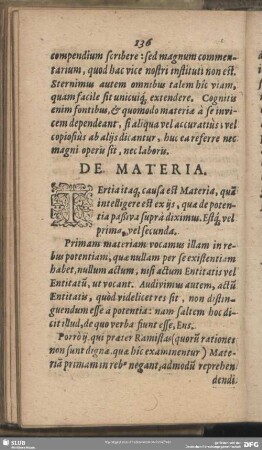 136
compendium scribere: sed magnum commen-
tarium, quod hac vice nostri instituti non est.
Sternimus autem omnibus talem hic viam,
quam facile sit unicuiq, extendere. Cognitis
enim fontibus, & quomodo materia à se invi-
cem dependeant, si aliqua vel accuratiùs vel
copiosiùs ab alijs dicantur, huc ea referre nec
magni operis sit, nec laboris.
DE MATERIA.
TErtia itaq, causa est Materia, quā
intelligere est ex ijs, qua de poten-
tia passiva suprà diximus. Estq, vel
prima, vel secunda.
Primam materiam vocamus illam in re-
bus potentiam, qua nullam per se existentiam
habet, nullum actum, nisi actum Entitatis vel
Entitatū, ut vocant. Audivimus autem, actū
Entitatis, quòd videlicet res sit, non distin-
guendum esse a potentia: nam saltem hoc di-
cit illud, de quo verba fiunt esse, Ens.
Porrò ij, qui prater Ramistas (quorū rationes
non sunt digna, qua hic examinentur) Mate-
riā primam in reb9 negant, admodū reprehen
dendi
SLUB
DFG